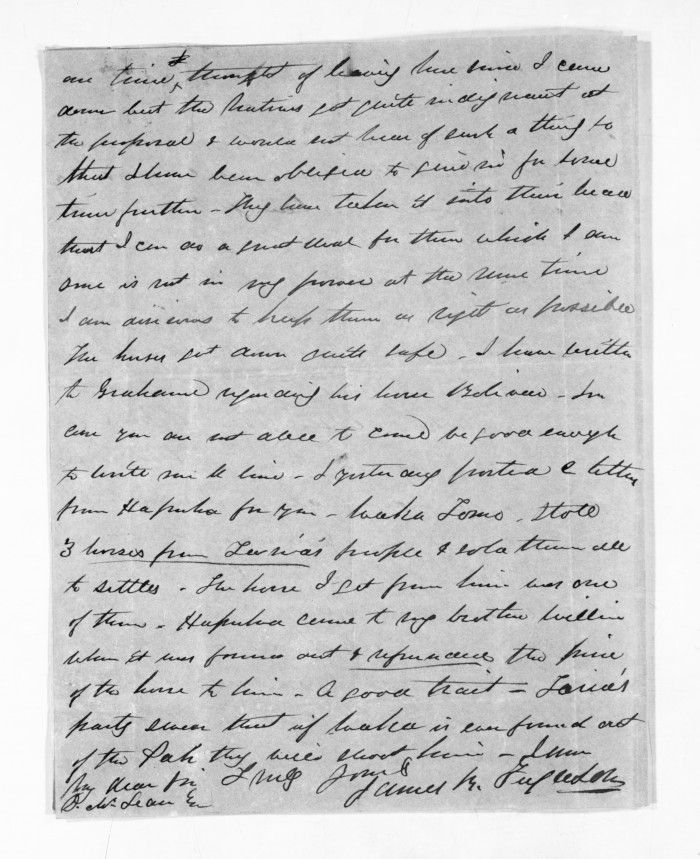 one time I thought of leaving here since I came
down but the Natives got quite indignant at
the proposal & would not hear of such a thing so
that I have been obliged to give in for some
time further - They have taken it into their head
that I can do a great deal for them which I am
sure is not in my power at the same time
I am anxious to keep them as right as possible
The horses got down quite safe - I have written
to Grahame regarding his horse Boliver - In
case you are not able to come be good enough
to write me a line - I yesterday posted a letter
from Hapuka for you - Waka Tomo stole
3 horses from Tareia's people & sold them all
to settlers - The horse I got from him was one
of them - Hapuka came to my brother William
when it was found out & refunded the price
of the horse to him - A good trait - Tareia's
party swear that if Waka is ever found out
of the Pah they will shoot him - I am
My dear Sir Truly Yours
James Ferguson
D. McLean Esq